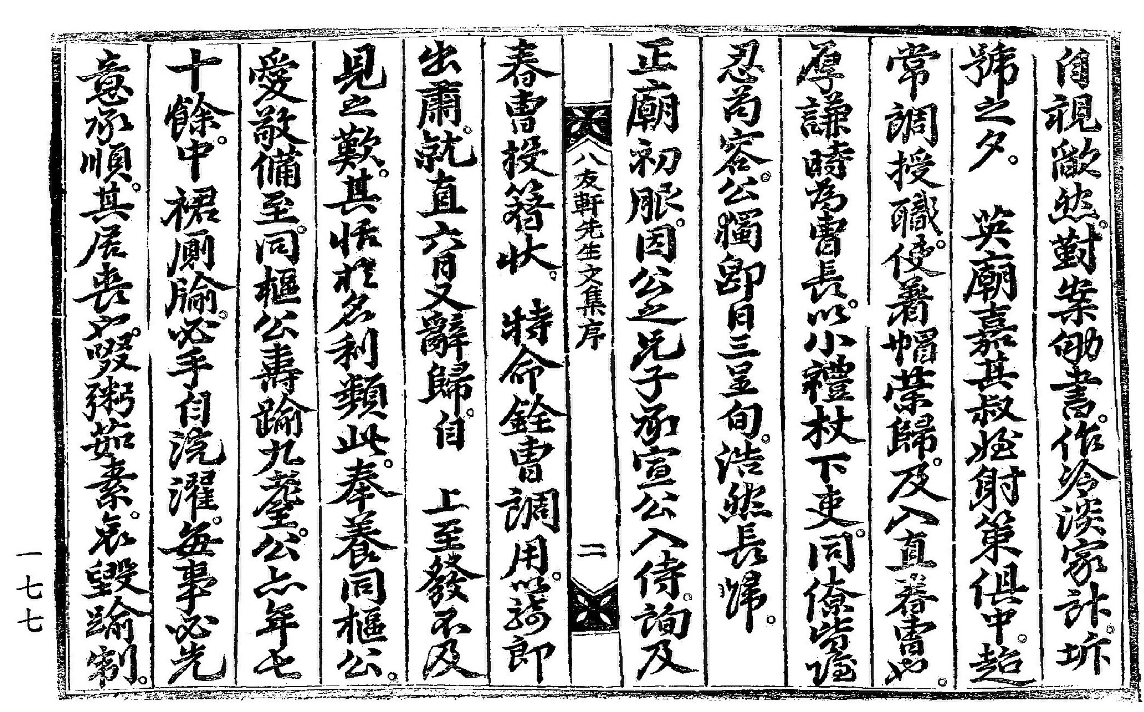 自視欿然。對案劬書。作冷淡家計。坼
號之夕。 英廟嘉其叔姪射策俱中。超
常調授職。便著帽榮歸。及入直春曹也。
厚謙時爲曹長。以小禮杖下吏。同僚皆隱
忍苟容。公獨卽日三呈旬。浩然長歸。
正廟初服。因公之兄子承宣公入侍。詢及
八友軒先生文集序 二
春曹投簪狀。 特命銓曹調用。以騎郎
出肅。就直六日。又辭歸。自 上至發不及
見之歎。其恬於名利類此。奉養同樞公。
愛敬備至。同樞公壽踰九耋。公亦年七
十餘。中裙厠牏。必手自浣濯。每事必先
意承順。其居喪也。啜粥茹素。哀毁踰制。
一七七